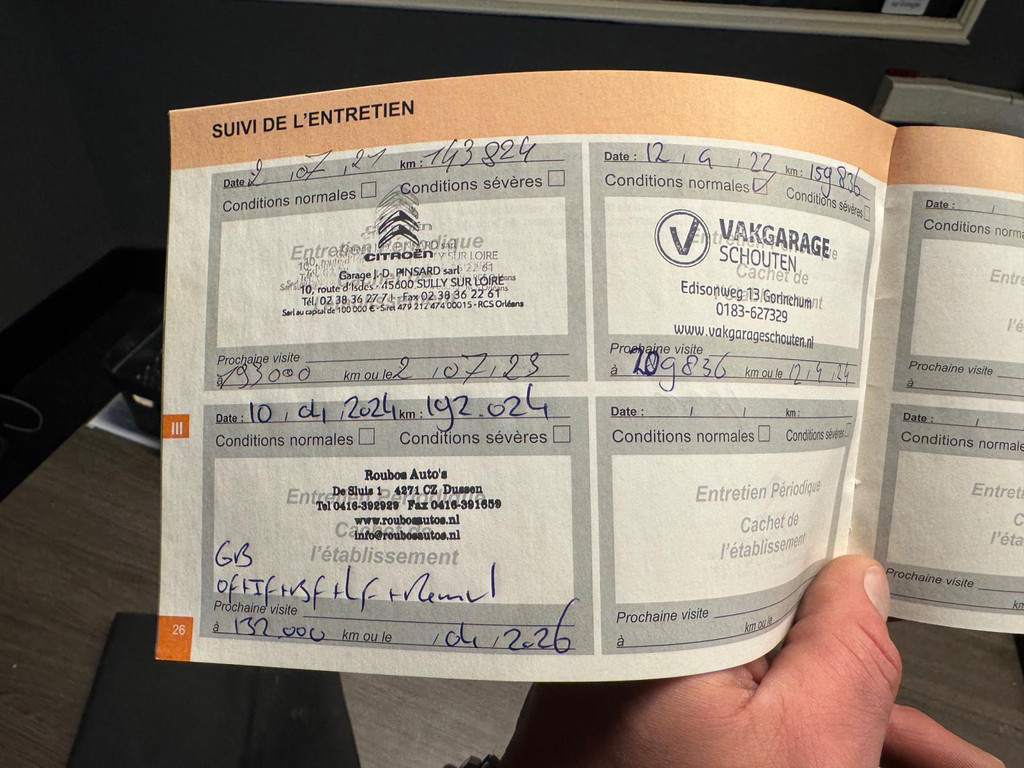 SUIVI DE L'ENTRETIEN
Date 2 , 07 , 21 km : 143 824
Conditions normales Conditions sévères
Entretien Périodique
CITROËN
Garage J.-D. PINSARD sarl
10, route d'Isdes - 45600 SULLY SUR LOIRE
Tél. 02 38 36 27 7 - Fax 02 38 36 22 61
Sarl au capital de 100 000 € - Siret 479 212 474 00015 - RCS Orléans
Prochaine visite
à 193000 km ou le 2 , 07 , 23
Date : 12 , 4 , 22 km : 159 836
Conditions normales Conditions sévères
V VAKGARAGE
SCHOUTEN
Cachet de
Edisonweg 13 Gorinchum
0183-627329
www.vakgarageschouten.nl
Prochaine visite
à 209836 km ou le 12 , 4 , 24
III
Date : 10 , 04 , 2024 km : 192.024
Conditions normales Conditions sévères
Entretien Périodique
Roubos Auto's
De Sluis 1 4271 CZ Dussen
Tel 0416-392929 Fax 0416-391659
www.roubosautos.nl
info@roubosautos.nl
Cachet de
l'établissement
GB
OF+IF+BF+LF+Remvl
Prochaine visite
à 132.000 km ou le , 04 , 2026
Date : / / km :
Conditions normales Conditions sévères
Entretien Périodique
Cachet de
l'établissement
Prochaine visite
à km ou le
26
Date : /
Conditions norma
Entre
l'é
Prochaine visite
à
Date : /
Conditions normale
Entret
Ca
l'éta
Prochaine visite
à